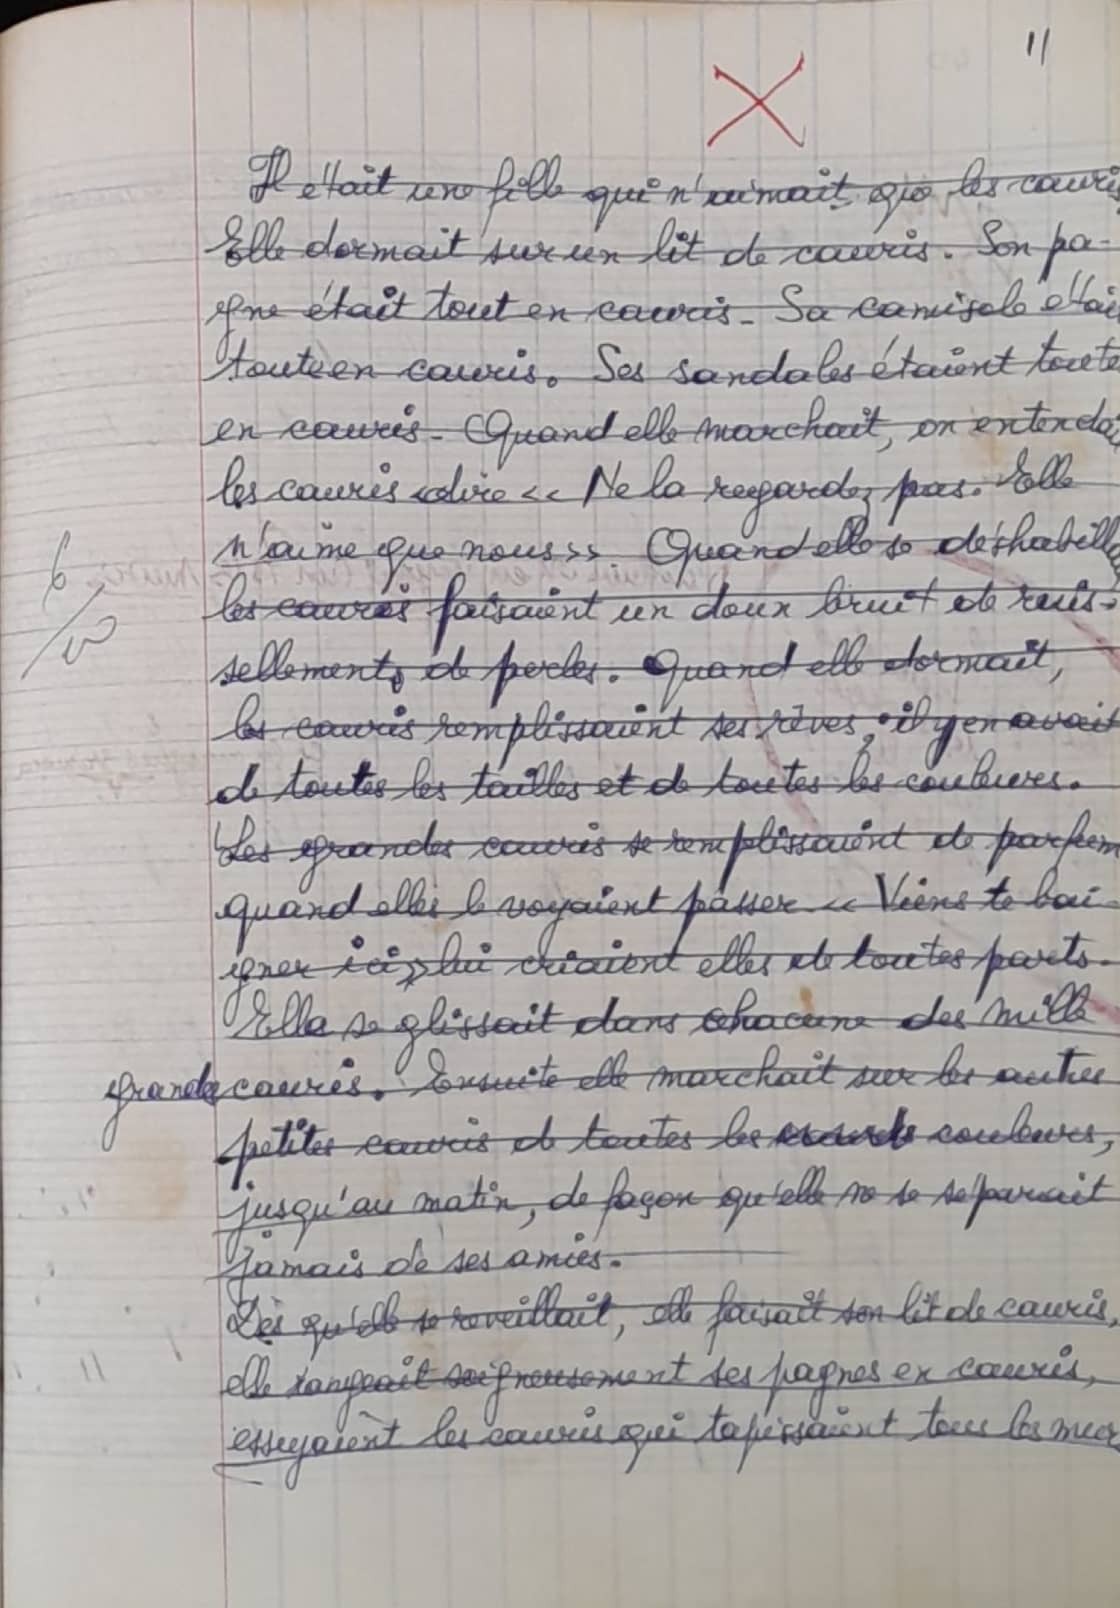 11
Il était une fille qui n'aimait que les cauris
Elle dormait sur un lit de cauris. Son pa-
gne était tout en cauris. Sa camisole étai
toute en cauris. Ses sandales étaient toute
en cauris. Quand elle marchait, on entendai
les cauris dire << Ne la regardez pas. Elle
n'aime que nous >> Quand elle se déshabilla
les cauris faisaient un doux bruit de ruis-
sellements de perles. Quand elle dormait,
les cauris remplissaient ses rêves, il y en avait
de toutes les tailles et de toutes les couleures.
Les grandes cauris se remplissaient de parfum
quand elles le voyaient passer << Viens te bai-
gner ici >> lui criaient elles de toutes parts.
Elle se glissait dans chacune des mille
grandes cauris. Ensuite elle marchait sur les autres
petites cauris de toutes les couleurs,
jusqu'au matin, de façon qu'elle ne se séparait
jamais de ses amies.
Dès qu'elle se reveillait, elle faisait son lit de cauris,
elle rangeait soigneusement ses pagnes en cauris,
essuyaient les cauris qui tapissaient tous les mur
6/10